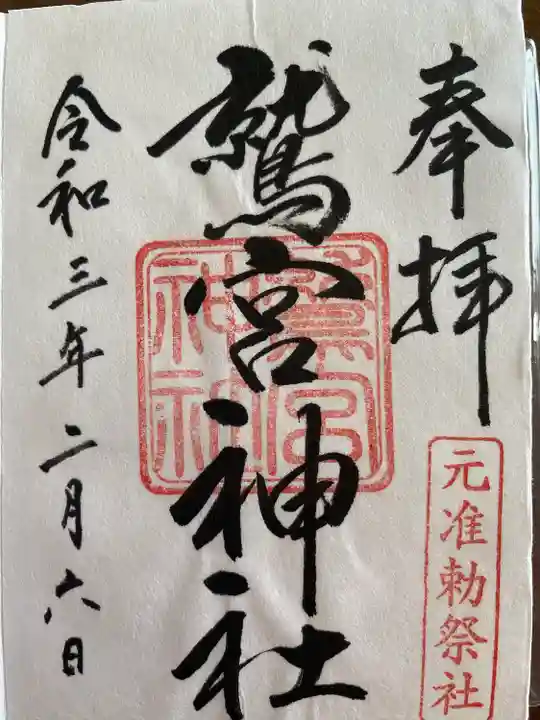 奉拝
元准勅祭社
鷲宮神社
鷲宮
神社
令和三年二月六日